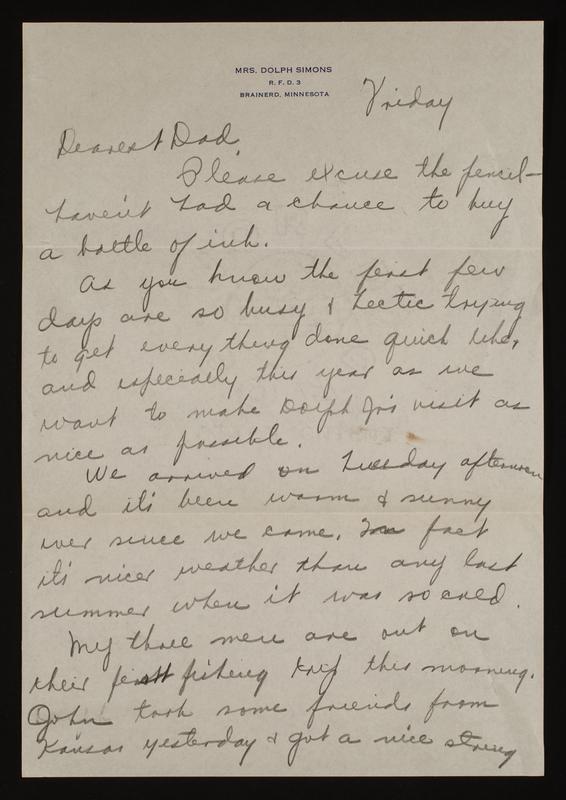 MRS. DOLPH SIMONS
R. F. D. 3
BRAINERD, MINNESOTA
Friday
Dearest Dad,
Please excuse the pencil—
haven't had a chance to buy
a bottle of ink.
As you know the first few
days are so busy & hectic trying
to get everything done quick like,
and especially this year as we
want to make Dolph Jr's visit as
nice as possible.
We arrived on Tuesday afternoon
and it's been warm & sunny
ever since we came. In fact
it's nicer weather than any last
summer when it was so cold.
My three men are out on
their first fishing trip this morning.
John took some friends from
Kansas yesterday & got a nice string